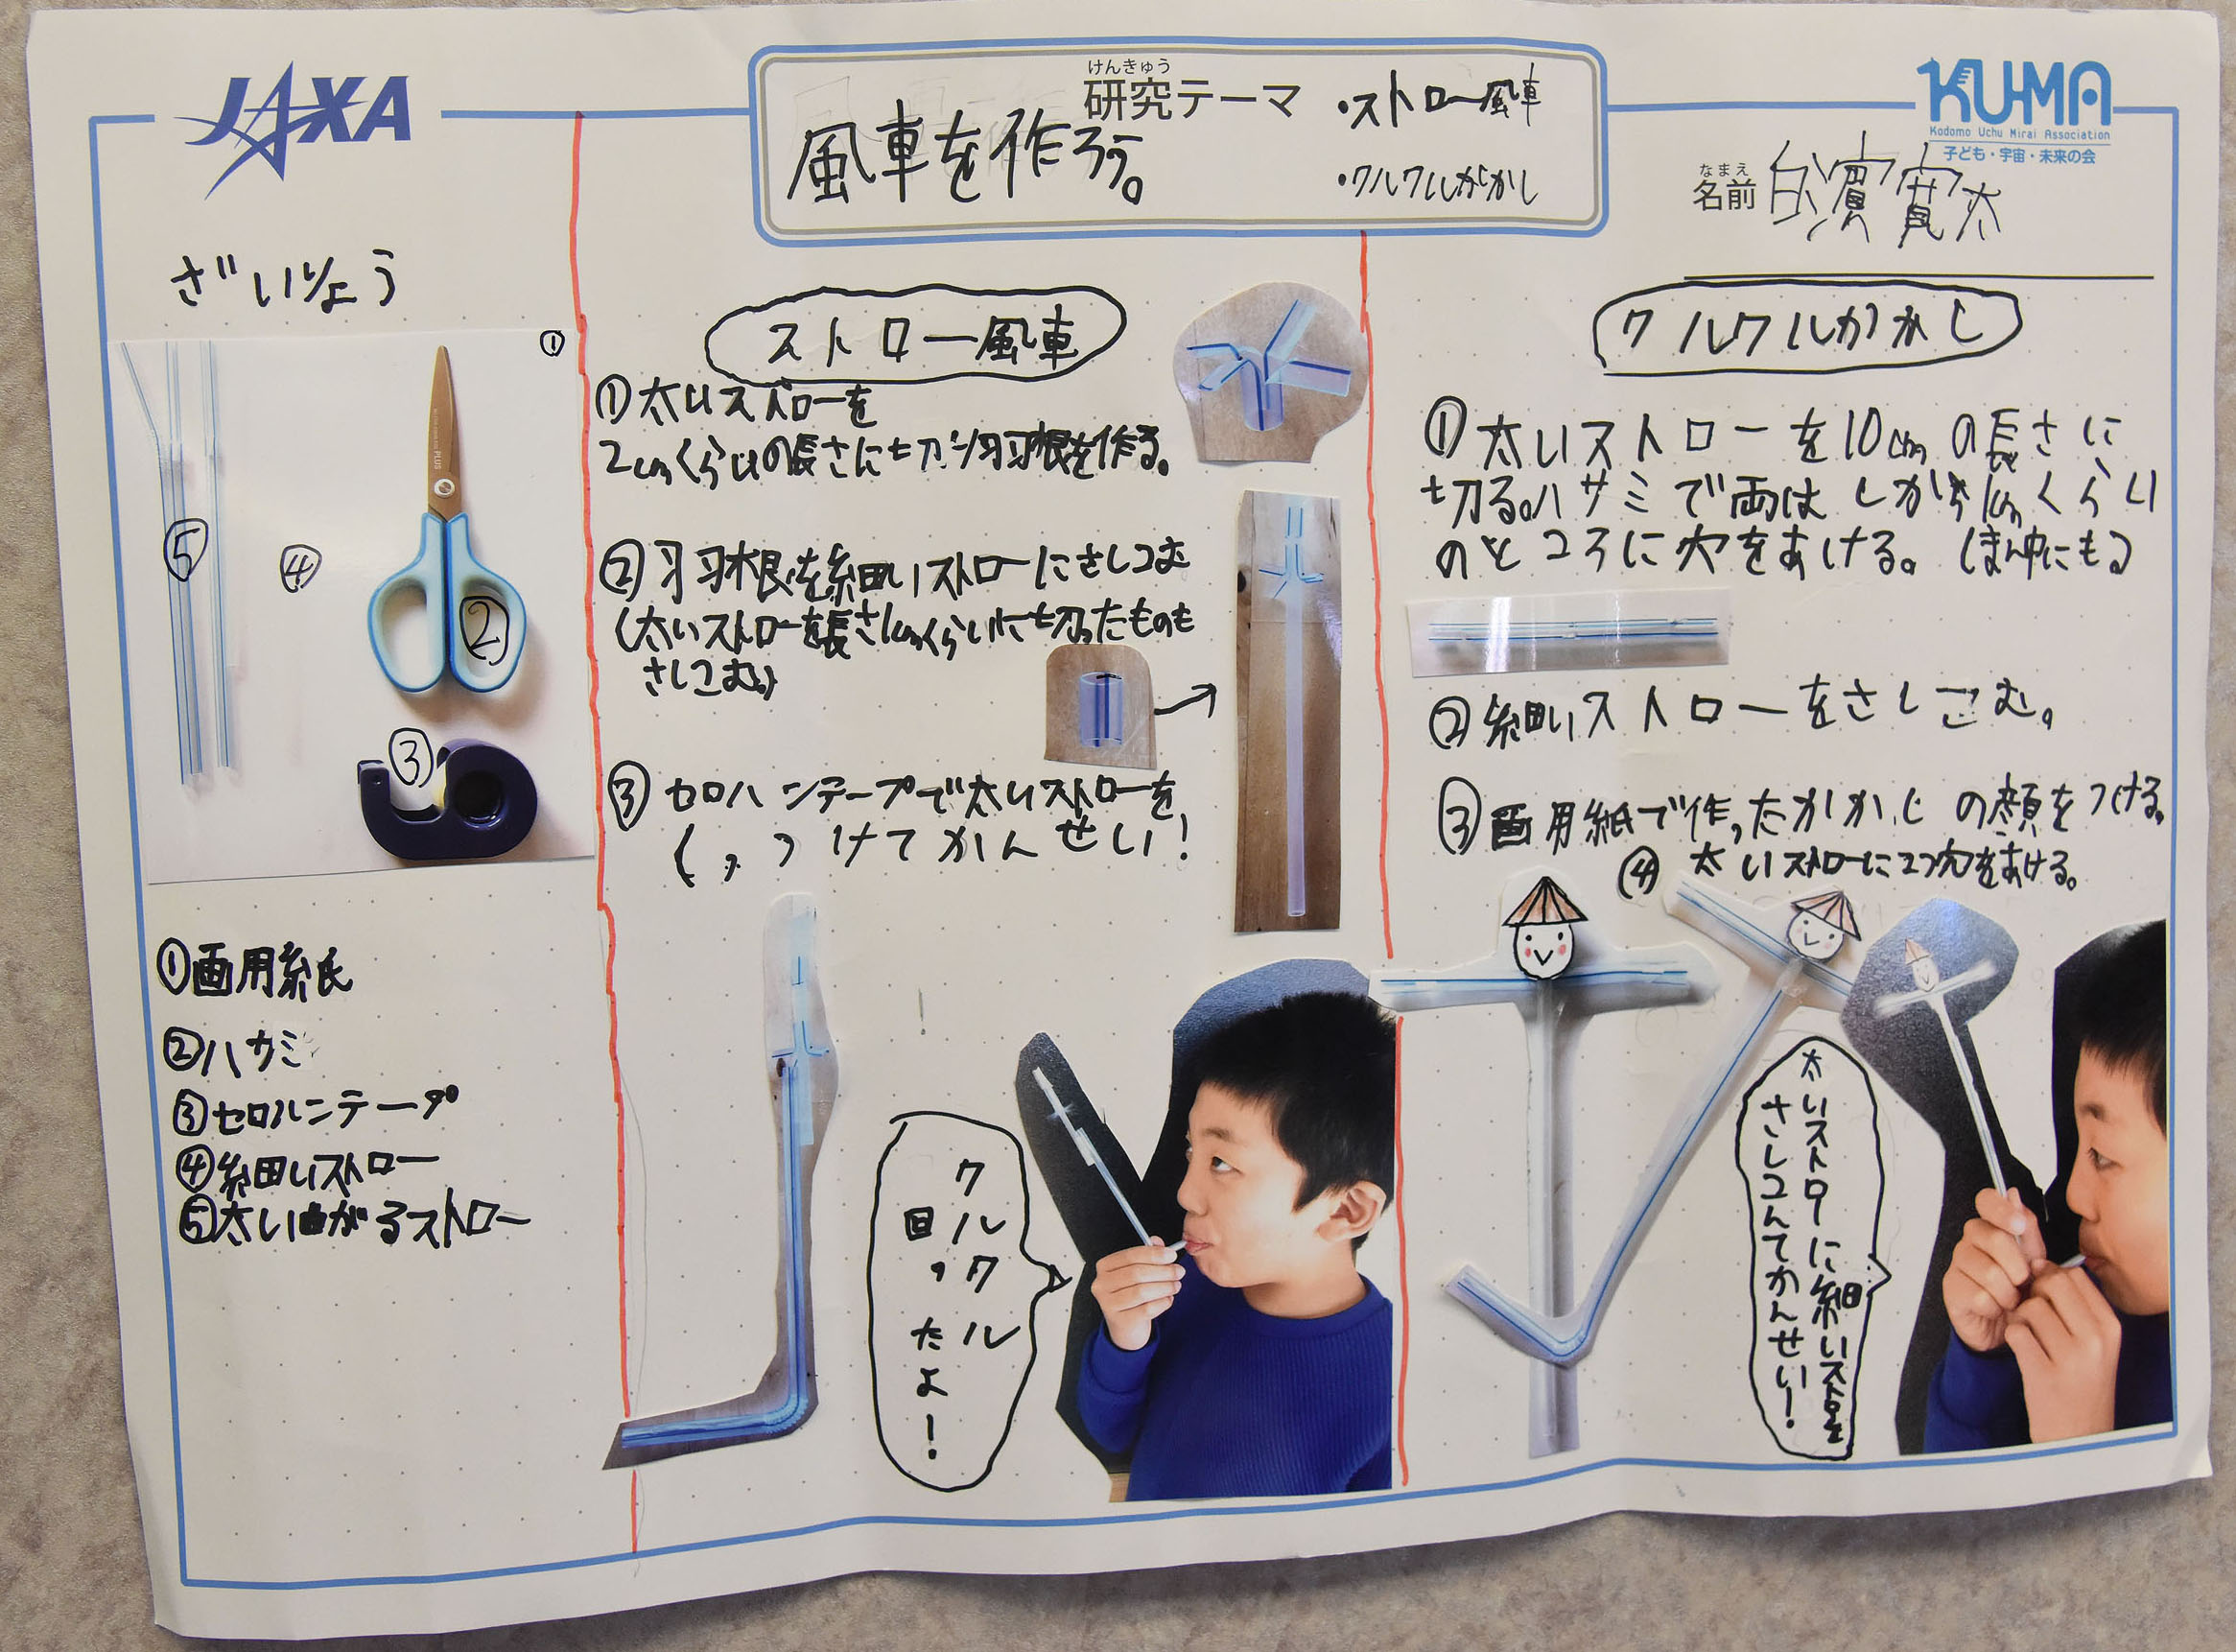 JAXA
けんきゅう
研究テーマ
風車を作ろう。
・ストロー風車
・クルクルかかし
KUMA
Kodomo Uchu Mirai Association
子ども・宇宙・未来の会
なまえ
名前 白濱寛太
ざいりょう
①
⑤
④
②
③
①画用紙
②ハサミ
③セロハンテープ
④細いストロー
⑤太い曲がるストロー
ストロー風車
①太いストローを
2cmくらいの長さに切り羽根を作る。
②羽根を細いストローにさしこむ
(太いストローを長さ1cmくらいに切ったものも
さしこむ)
③セロハンテープで太いストローを
くっつけてかんせい!
クルクル
回ったよ!
クルクルかかし
①太いストローを10cmの長さに
切る。ハサミで両はしから1cmくらい
のところに穴をあける。(まん中にも)
②細いストローをさしこむ。
③画用紙で作ったかかしの顔をつける。
④太いストローに2つ穴をあける。
太いストローに細いストローを
さしこんでかんせい!